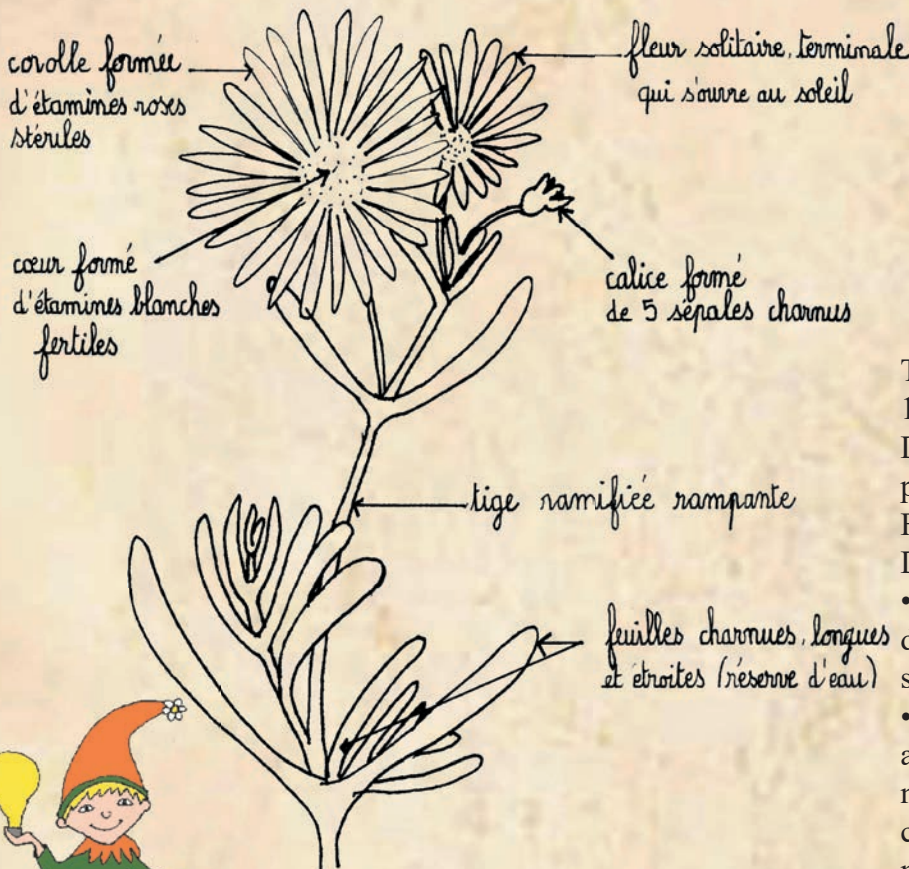 corolle formée
d'étamines roses
stériles
fleur solitaire, terminale
qui s'ouvre au soleil
cœur formé
d'étamines blanches
fertiles
calice formé
de 5 sépales charnus
tige ramifiée rampante
feuilles charnues, longues
et étroites (réserve d'eau)